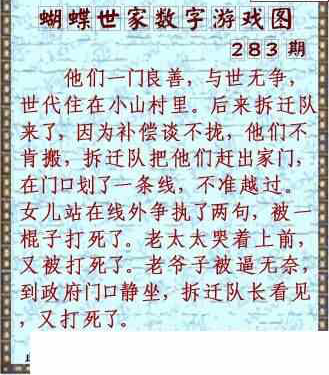 蝴蝶世家数字游戏图
283期
他们一门良善，与世无争，
世代住在小山村里。后来拆迁队
来了，因为补偿谈不拢，他们不
肯搬，拆迁队把他们赶出家门，
在门口划了一条线，不准越过。
女儿站在线外争执了两句，被一
棍子打死了。老太太哭着上前，
又被打死了。老爷子被逼无奈，
到政府门口静坐，拆迁队长看见
，又打死了。